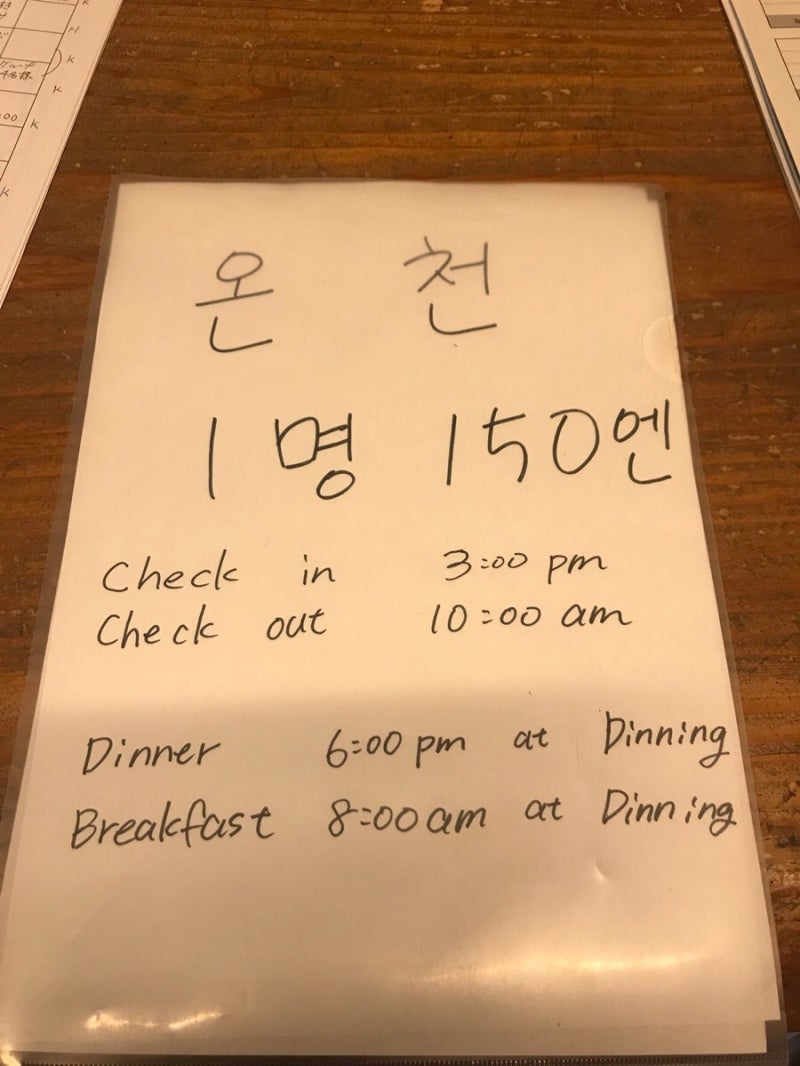 온 천
1명 150엔
Check in 3:00 pm
Check out 10:00 am
Dinner 6:00 pm at Dinning
Breakfast 8:00 am at Dinning